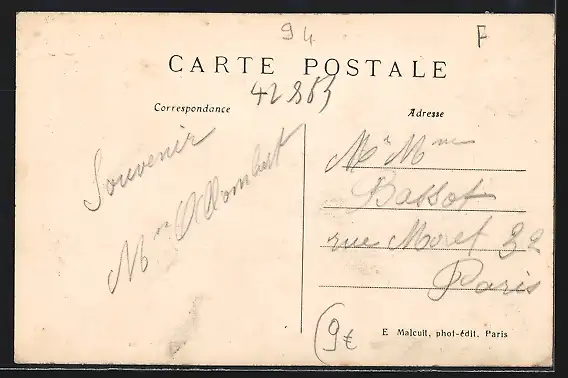 94
F
CARTE POSTALE
42863
Correspondance
Adresse
Souvenir
Mme Allombert
Mr Mme
Bassot
rue Moret 32
Paris
E Malcuit, phot-édit. Paris
9€